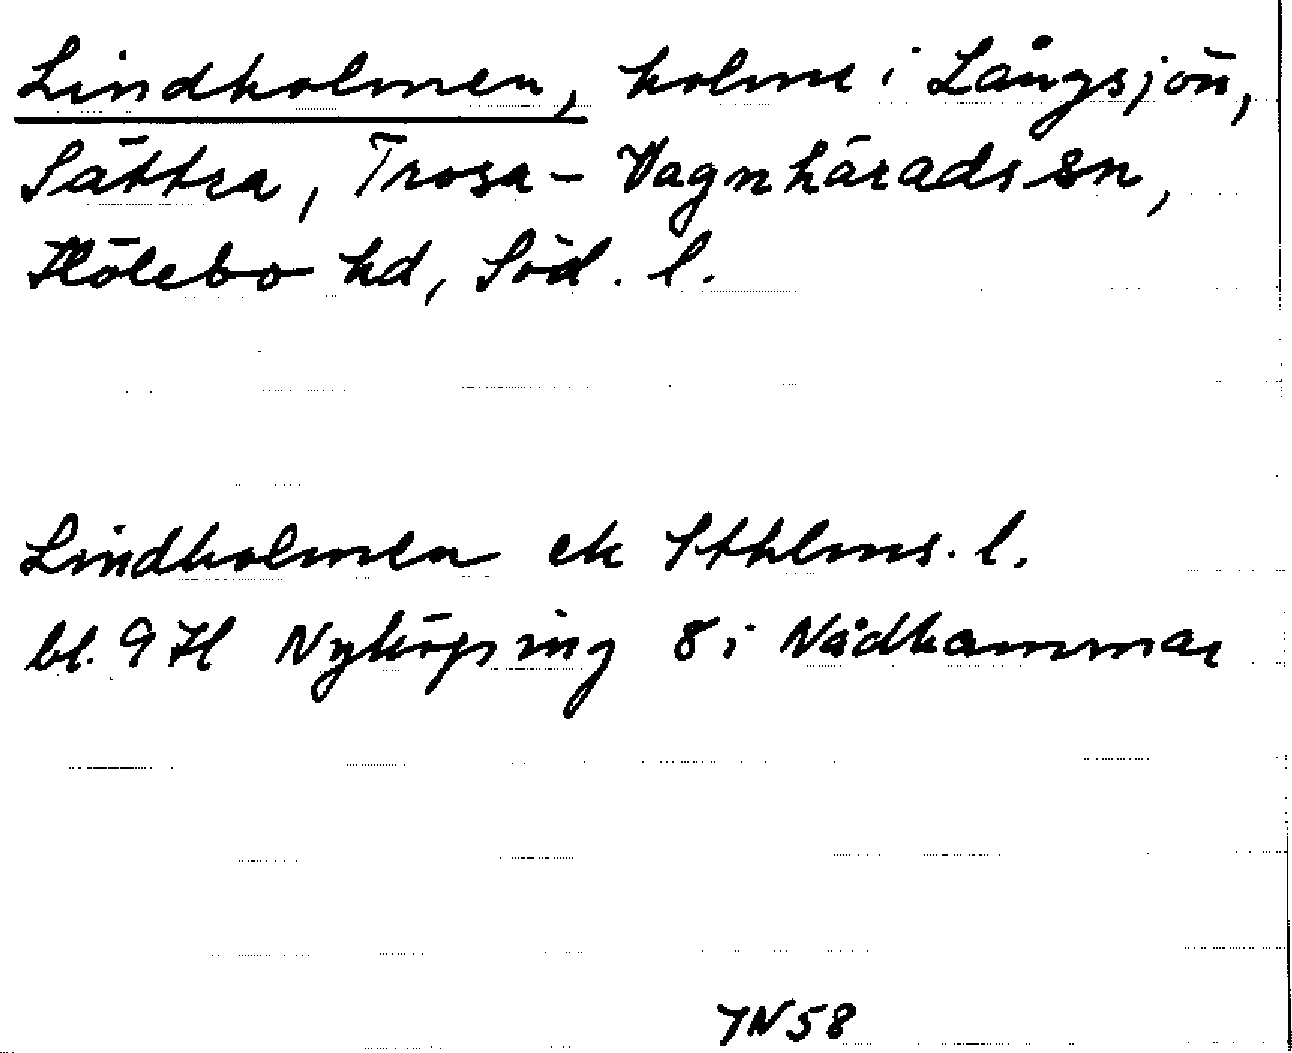 Lindholmen, holme i Långsjön,
Sättra, Trosa-Vagnhärads sn,
Hölebo hd, Söd. l.
Lindholmen ek Sthlms. l.
bl. 9 H Nyköping 8 i Nådhammar
YN58